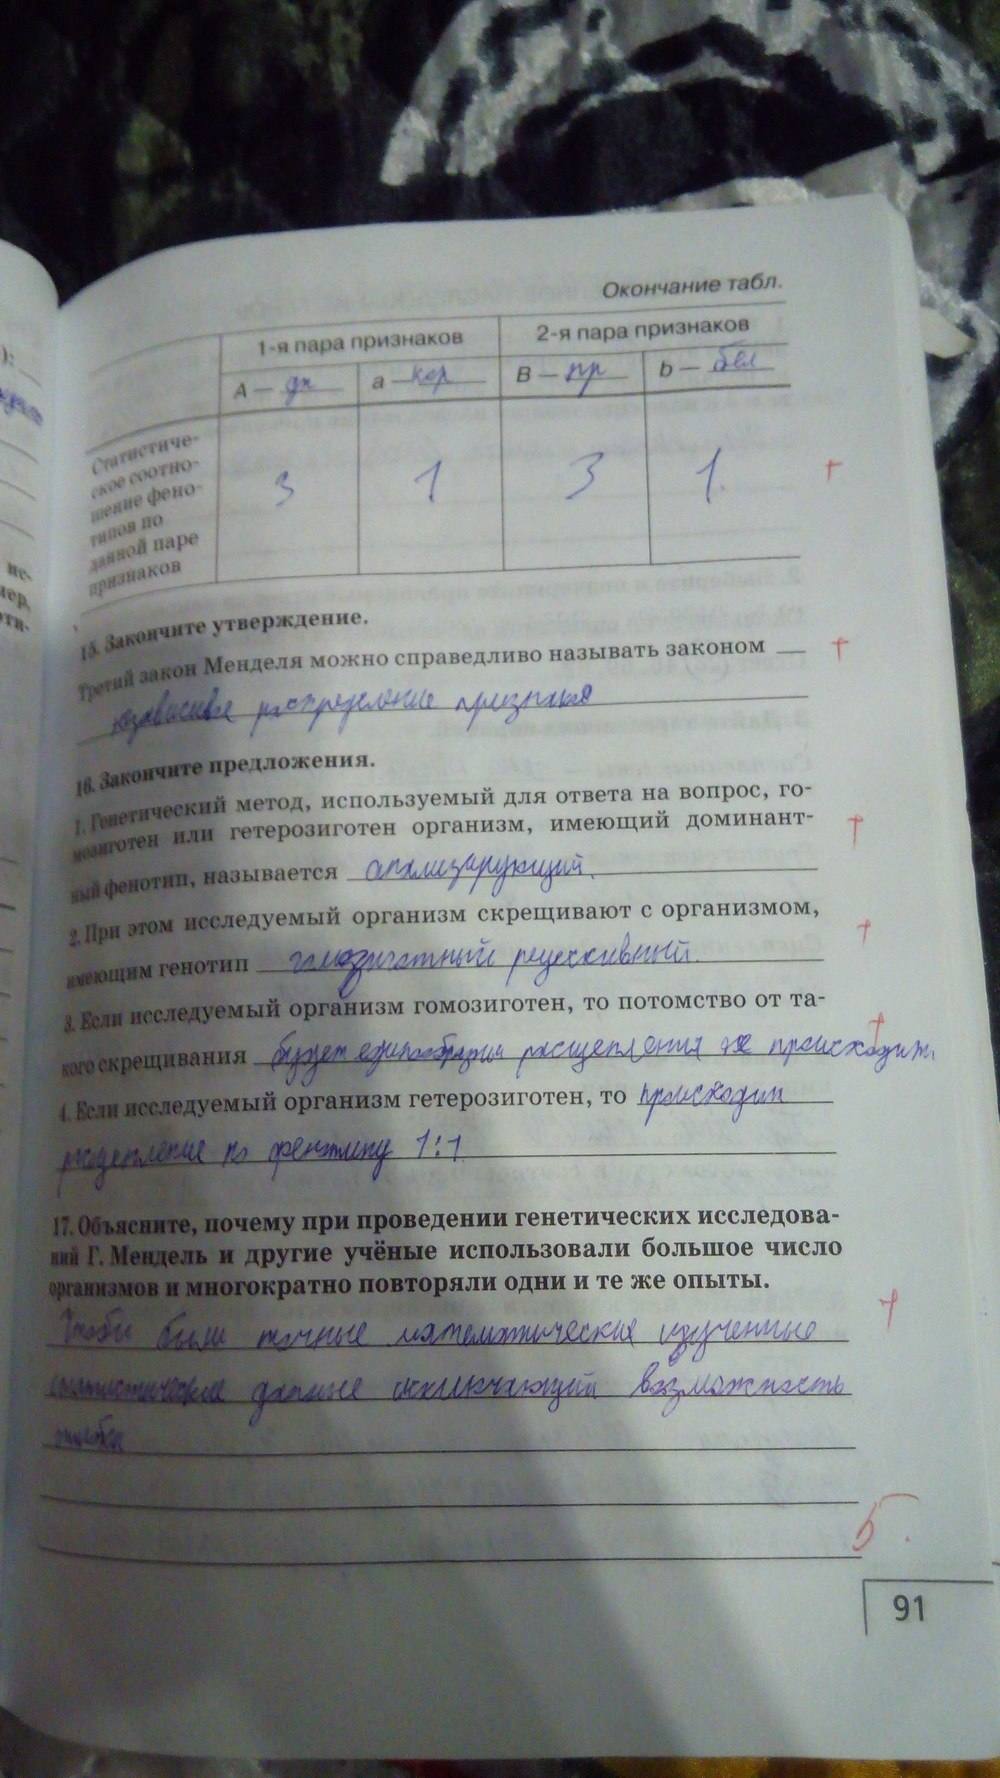 Окончание табл.
1-я пара признаков 2-я пара признаков
А — дл а — кор В — пр b — бел
Статистиче-
ское соотно-
шение фено-
типов по
данной паре
признаков
3 1 3 1.
15. Закончите утверждение.
Третий закон Менделя можно справедливо называть законом
независимое распределение признаков
16. Закончите предложения.
1. Генетический метод, используемый для ответа на вопрос, го-
мозиготен или гетерозиготен организм, имеющий доминант-
ный фенотип, называется анализирующий.
2. При этом исследуемый организм скрещивают с организмом,
имеющим генотип гомозиготный рецессивный.
3. Если исследуемый организм гомозиготен, то потомство от та-
кого скрещивания будет единообразия расщепления не происходит.
4. Если исследуемый организм гетерозиготен, то происходит
расщепление по фенотипу 1:1.
17. Объясните, почему при проведении генетических исследова-
ний Г. Мендель и другие учёные использовали большое число
организмов и многократно повторяли одни и те же опыты.
Чтобы были точные математические изученные
статистические данные исключающий возможность
ошибки
5.
91
):
ис-
мер,